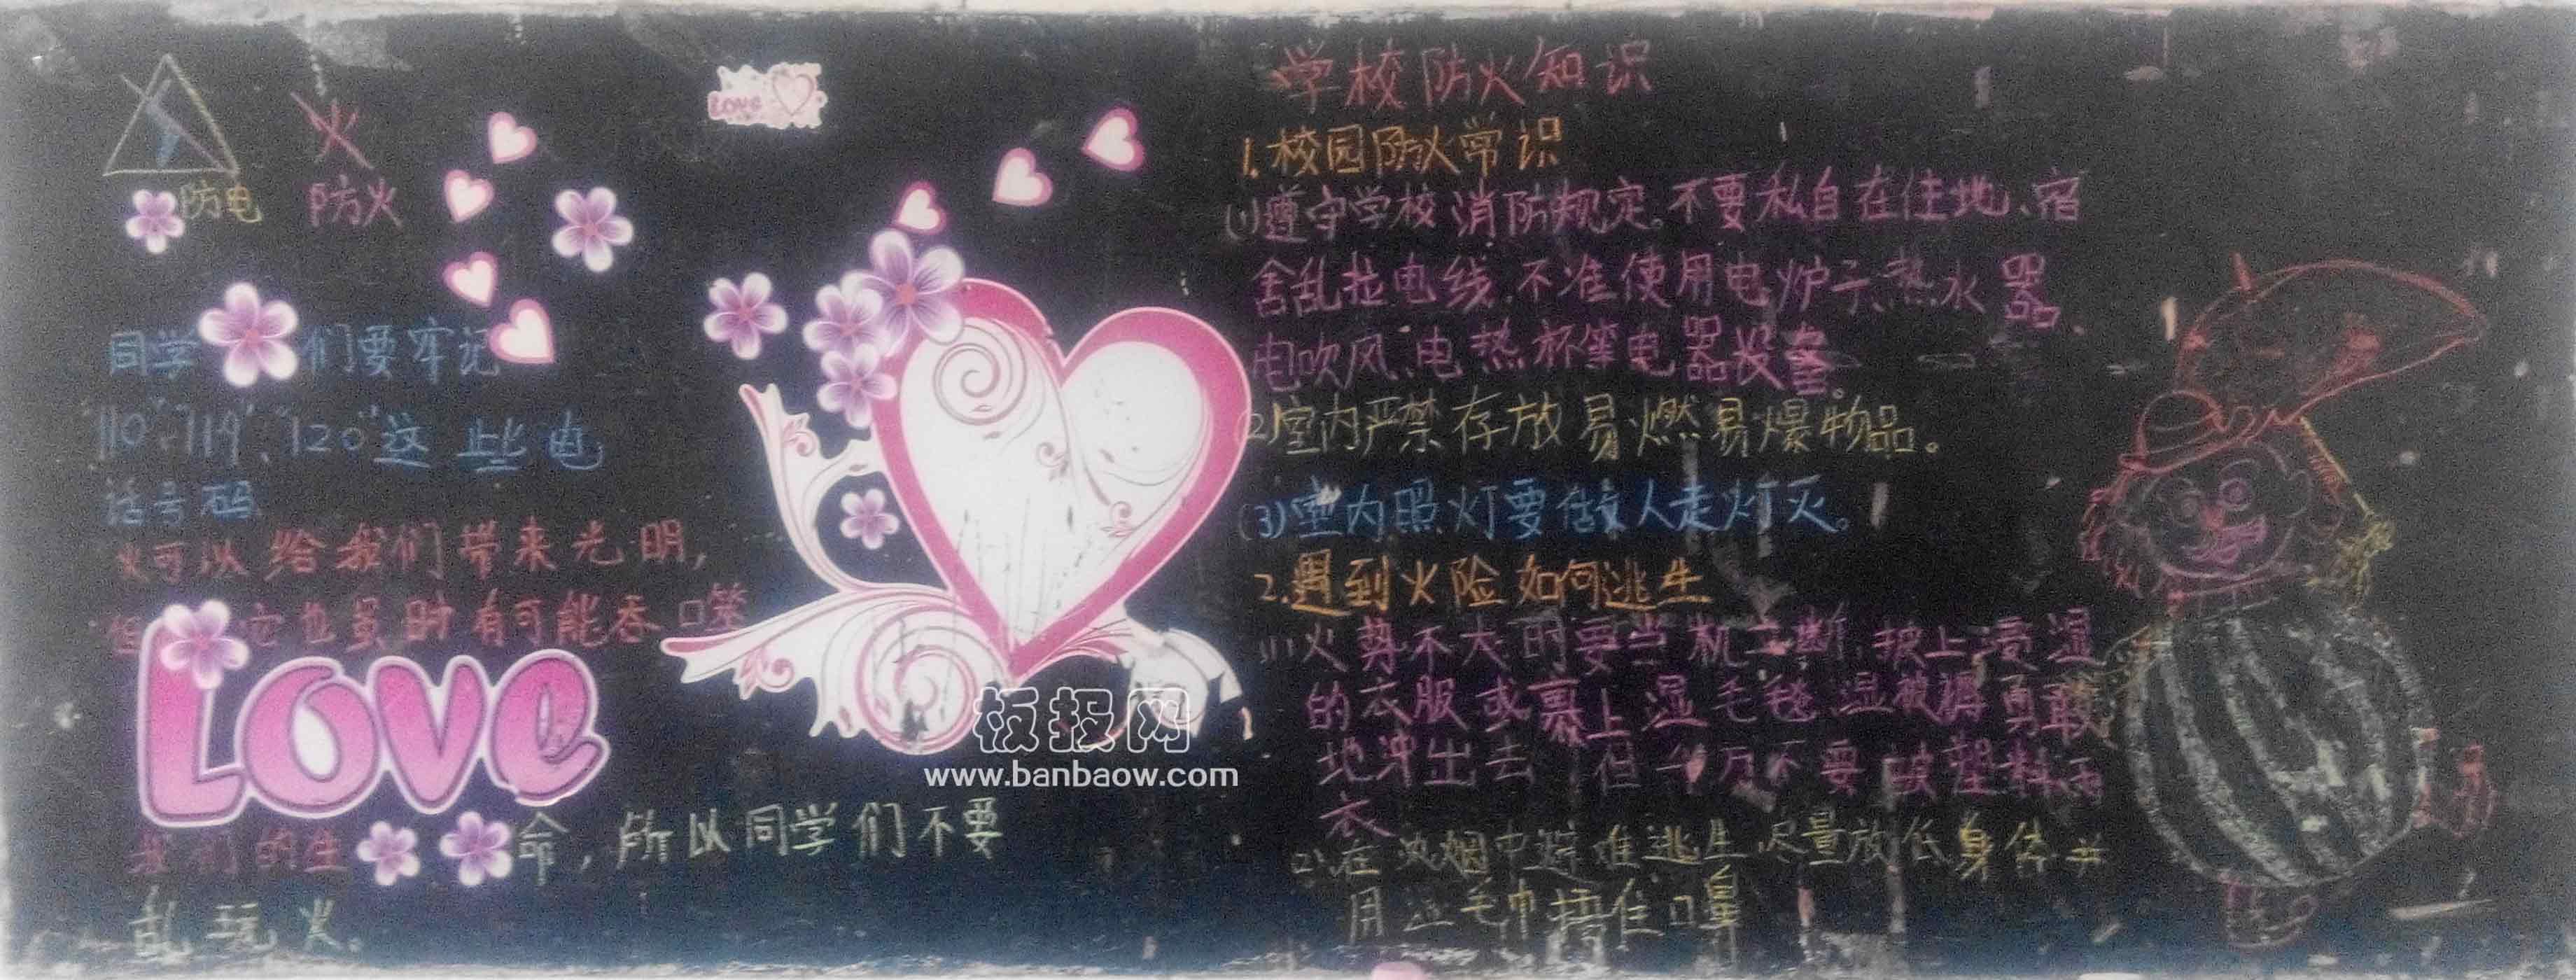 防电 防火
同学们要牢记
"110"、"119"、"120"这些电
话号码
火可以给我们带来光明,
但它也虽时有可能吞口筮
LOVE
我们的生命,所以同学们不要
乱玩火。
LOVE
板报网
www.banbaow.com
学校防火知识
1.校园防火常识
(1)遵守学校消防规定。不要私自在住地、宿
舍乱拉电线、不准使用电炉子、热水器、
电吹风、电热杯等电器设备。
(2)室内严禁存放易燃易爆物品。
(3)室内照灯要做人走灯灭。
2.遇到火险如何逃生
(1)火势不大时要当机立断,披上浸湿
的衣服或裹上湿毛毯、湿被褥勇敢
地冲出去 但千万不要披塑料雨
衣
(2)在浓烟中避难逃生,尽量放低身体并
用湿毛巾捂住口鼻